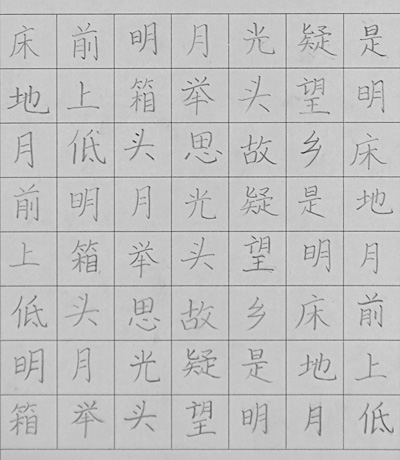 床前明月光疑是
地上箱举头望明
月低头思故乡床
前明月光疑是地
上箱举头望明月
低头思故乡床前
明月光疑是地上
箱举头望明月低